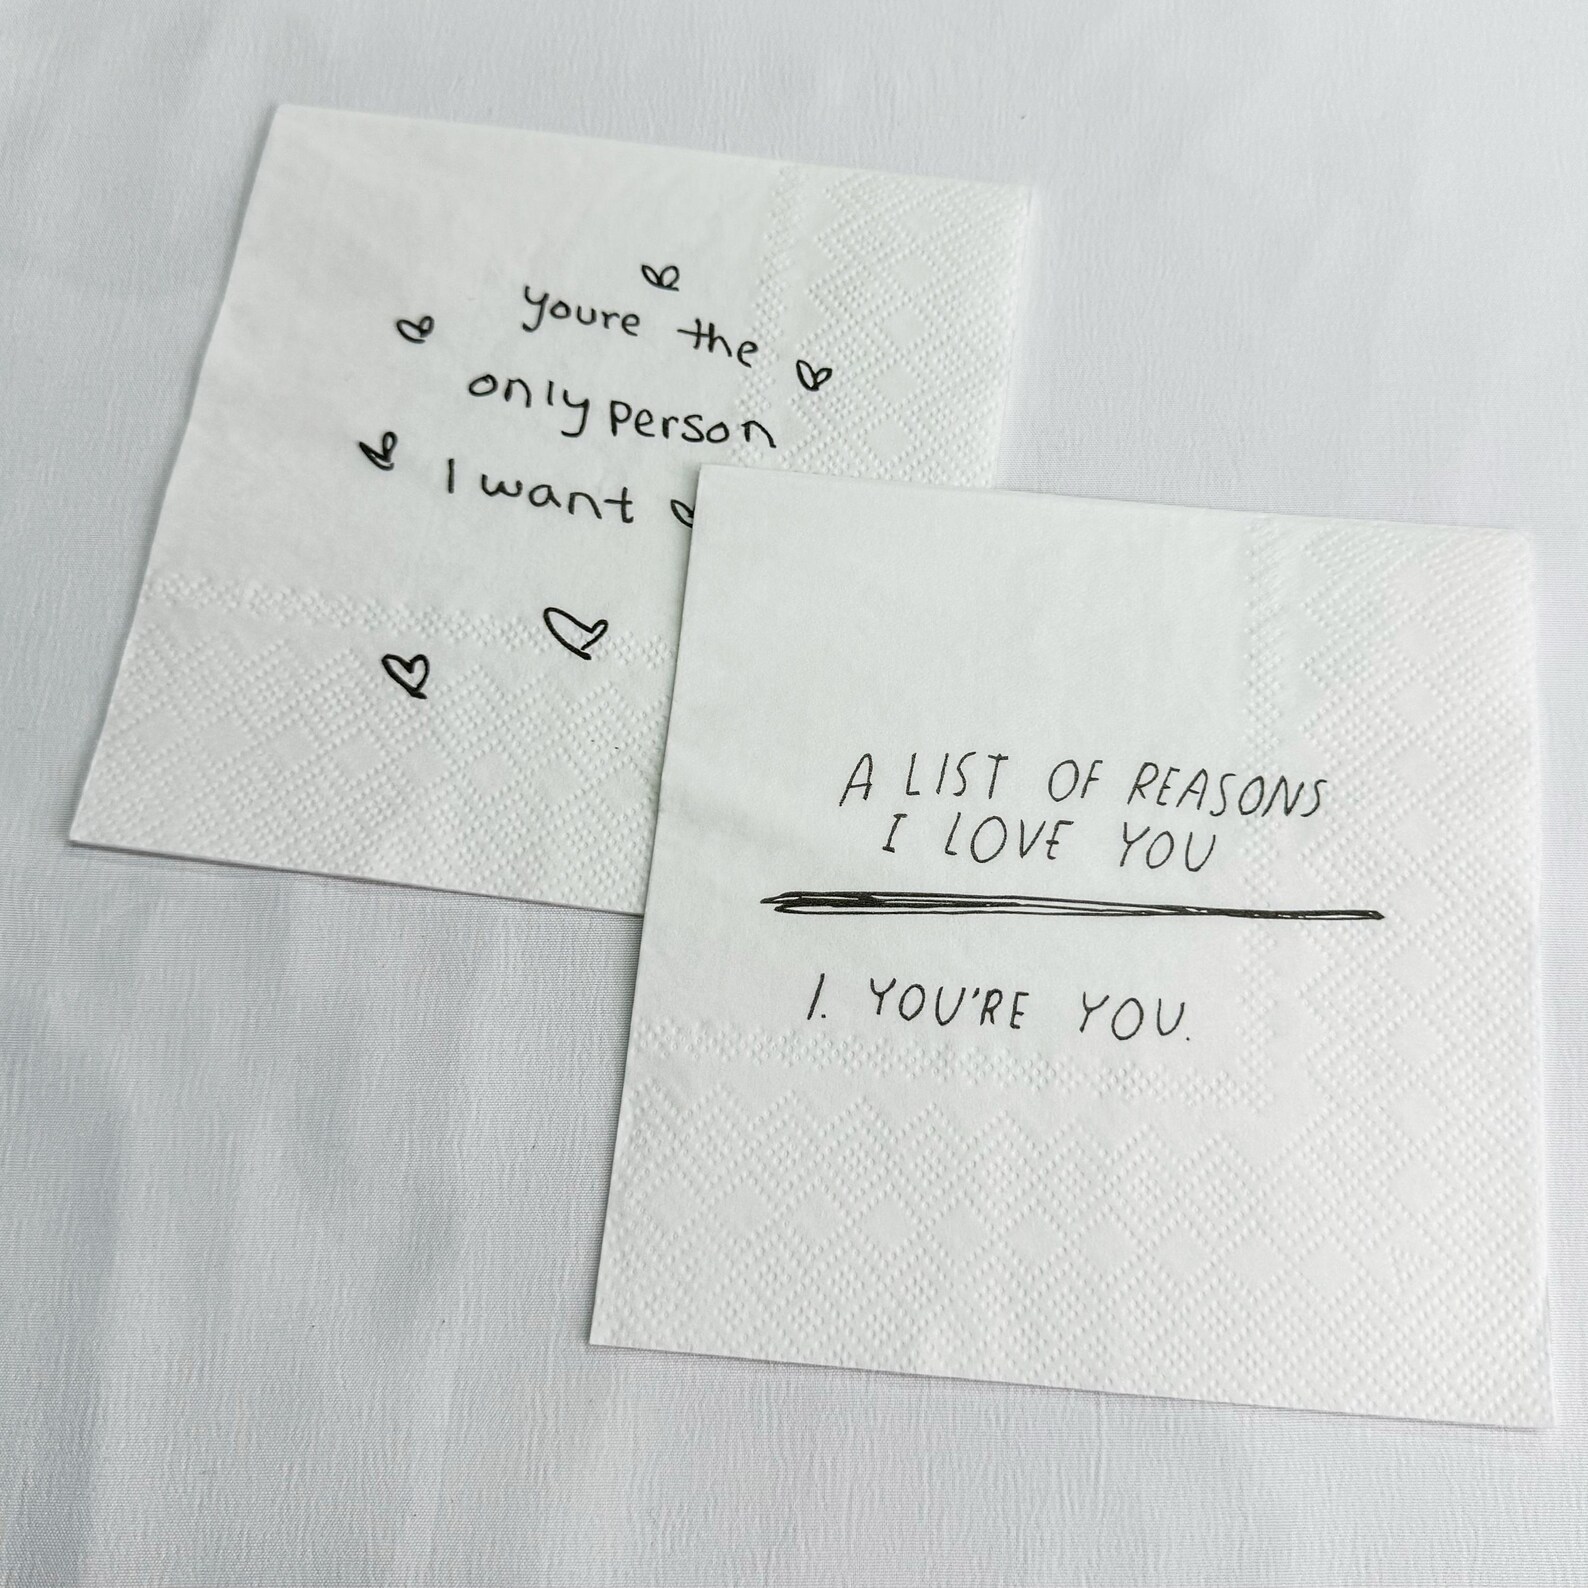 youre the
only person
I want
A LIST OF REASONS
I LOVE YOU
1. YOU'RE YOU.